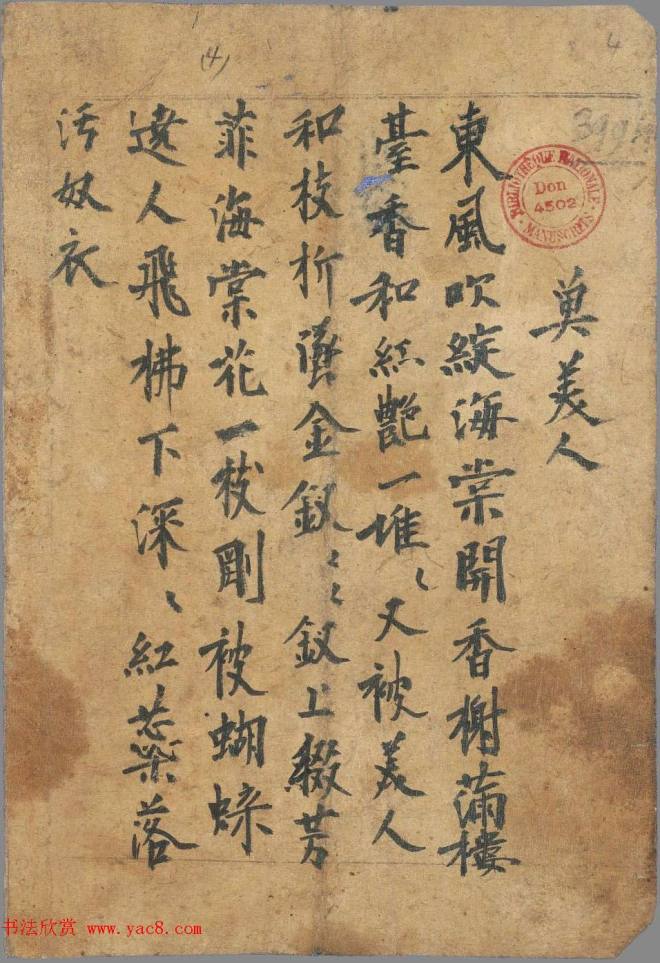 4
(4)
3994
BIBLIOTHÈQUE NATIONALE
Don
4502
MANUSCRITS
美人
東風吹綻海棠開香榭滿樓
臺香和紅艷一堆〻又被美人
和枝折墜金釵〻〻釵上綴芳
菲海棠花一枝剛被蝴蝶
遶人飛拂下深〻紅蕊落
污奴衣
书法欣赏 www.yac8.com